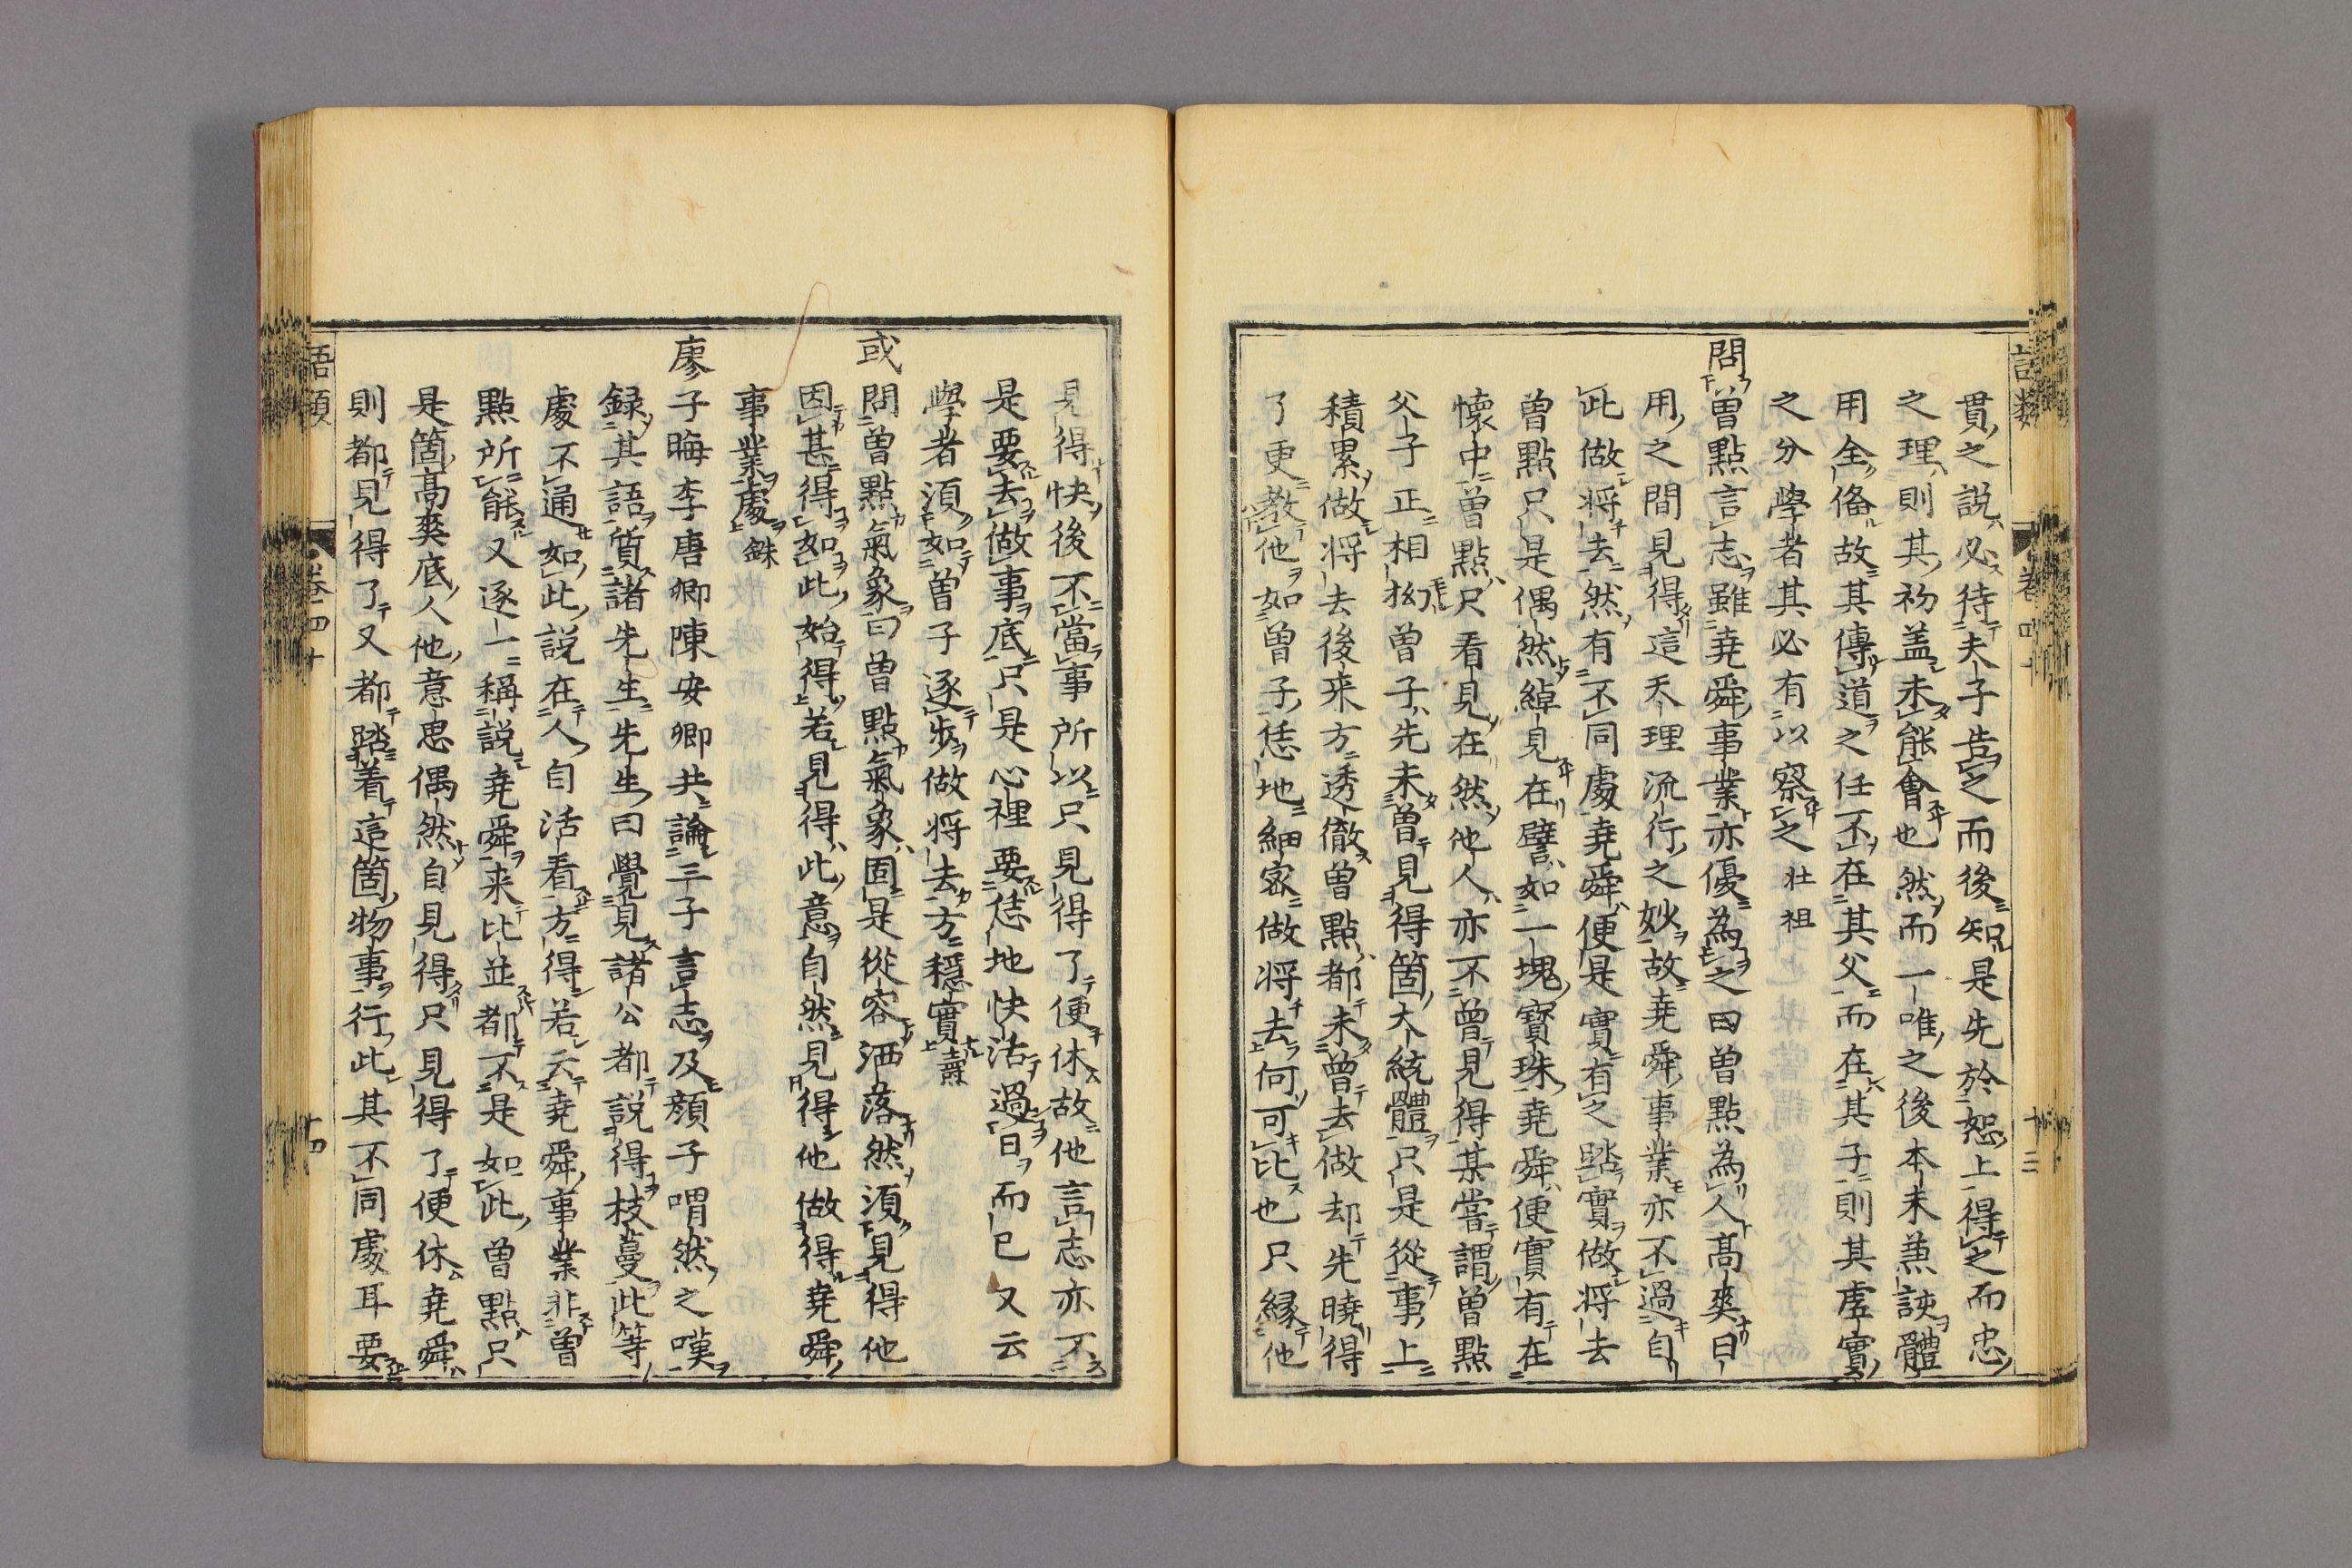 貫之説必待夫子告之而後知是先於恕上得之而忠
之理則其初盖未能會也然而一唯之後本末兼該體
用全俻故其傳道之任不在其父而在其子則其虗實
之分學者其必有以察之壮祖
問曽點言志雖堯舜事業亦優為之曰曽點為人髙爽日
用之間見得這天理流行之妙故堯舜事業亦不過自
此做将去然有不同處堯舜便是實有之踏實做将去
曽點只是偶然綽見在譬如一塊寳珠堯舜便實有在
懐中曽點只看見在然他人亦不曽見得某嘗謂曽點
父子正相拗曽子先未曽見得箇大統體只是從事上
積累做将去後来方透徹曽點都未曽去做却先曉得
了更教他如曽子恁地細宻做将去何可比也只縁他
見得快後不當事所以只見得了便休故他言志亦不
是要去做事底只是心裡要恁地快活過日而已又云
學者須如曽子逐歩做将去方穩實燾
或問曽點氣象曰曽點氣象固是從容洒落然須見得他
因甚得如此始得若見得此意自然見得他做得堯舜
事業處銖
廖子晦李唐卿陳安卿共論三子言志及顔子喟然之嘆
録其語質諸先生先生曰覺見諸公都説得枝蔓此等
處不通如此説在人自活看方得若云堯舜事業非曽
點所能又逐一稱説堯舜来比並都不是如此曽點只
是箇髙爽底人他意思偶然自見得只見得了便休堯舜
則都見得了又都踏着這箇物事行此其不同處耳要
語類
卷四十
十四